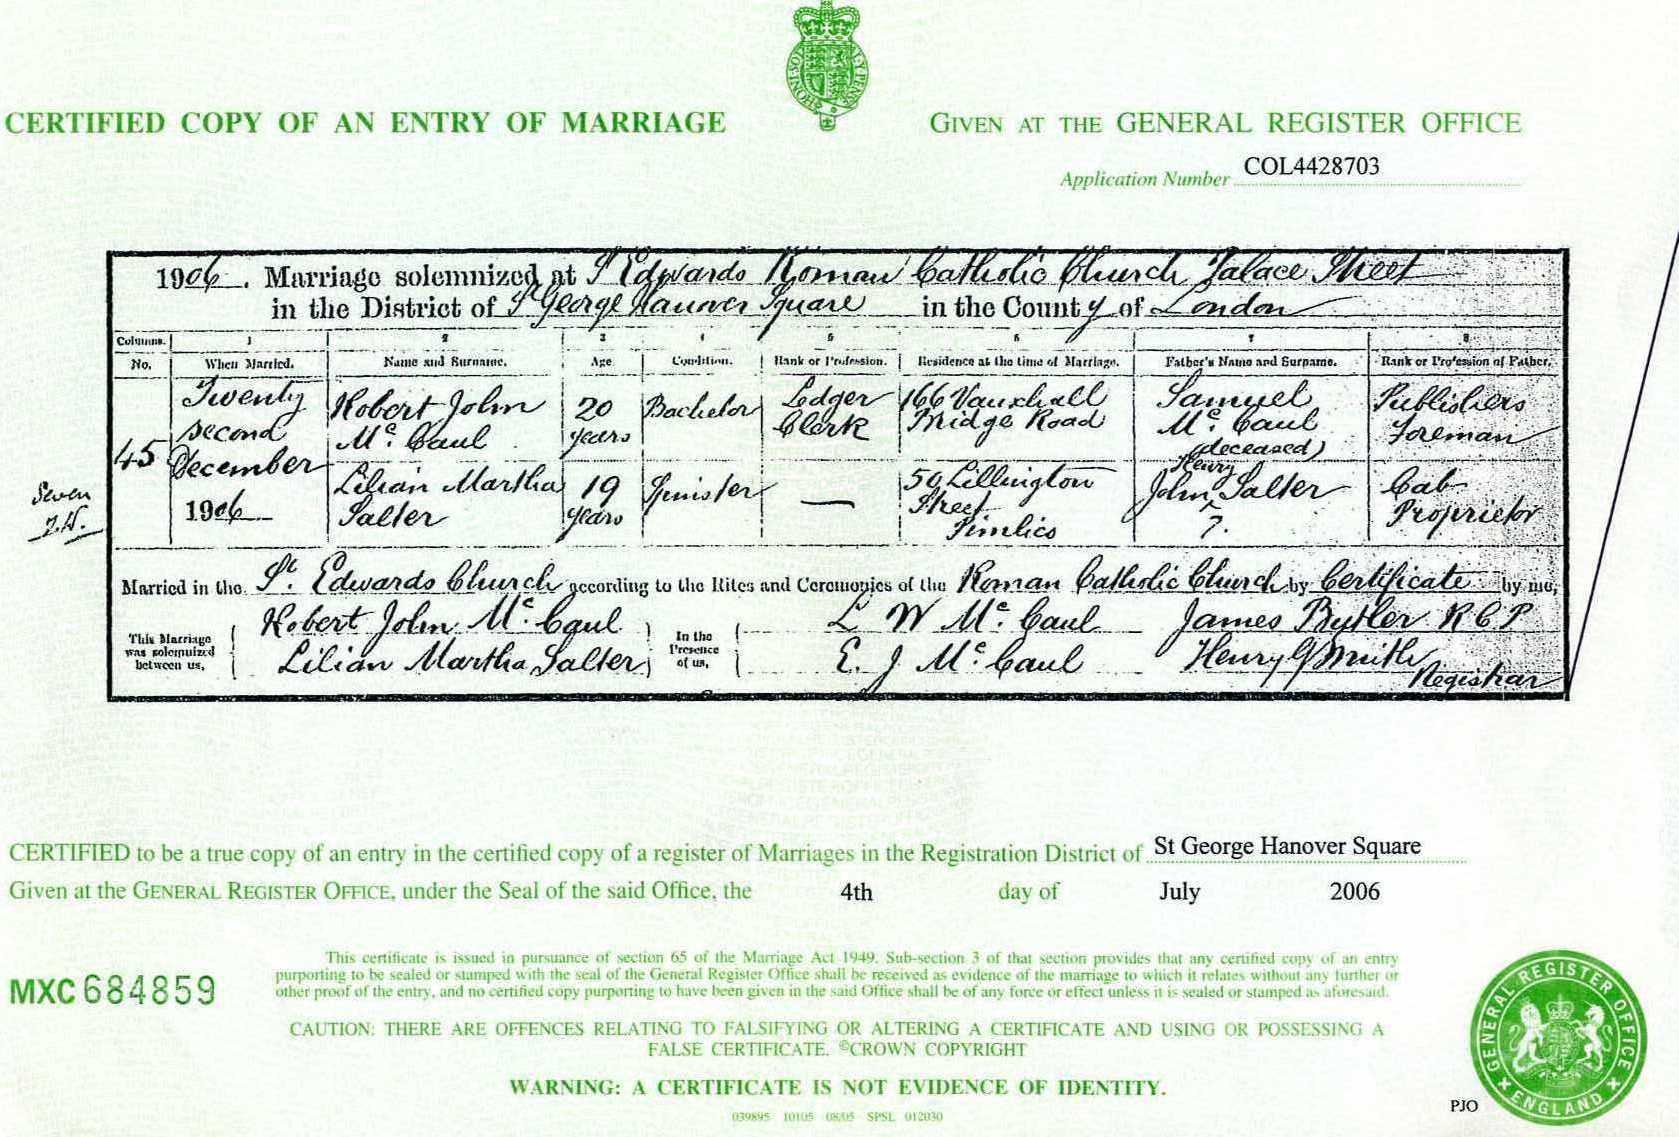 CERTIFIED COPY OF AN ENTRY OF MARRIAGE
GIVEN AT THE GENERAL REGISTER OFFICE
Application Number COL4428703
1906. Marriage solemnized at St Edwards Roman Catholic Church Palace Street
in the District of St George Hanover Square in the County of London
Columns. 1 2 3 4 5 6 7 8
No. When Married. Name and Surname. Age Condition. Rank or Profession. Residence at the time of Marriage. Father's Name and Surname. Rank or Profession of Father.
45
Twenty
second
December
1906
Robert John
Mc Caul
20
years
Bachelor
Ledger
Clerk
166 Vauxhall
Bridge Road
Samuel
Mc Caul
(deceased)
Publishers
Foreman
Lilian Martha
Salter
19
years
Spinster
—
50 Lillington
Street
Pimlico
Henry
John Salter
7.
Cab
Proprietor
Seven
Married in the St. Edwards Church according to the Rites and Ceremonies of the Roman Catholic Church by Certificate by me,
This Marriage
was solemnized
between us,
Robert John Mc Caul
Lilian Martha Salter
In the
Presence
of us,
L W Mc Caul
E. J Mc Caul
James Butler R C P
Henry G Smith
Registrar
CERTIFIED to be a true copy of an entry in the certified copy of a register of Marriages in the Registration District of St George Hanover Square
Given at the GENERAL REGISTER OFFICE, under the Seal of the said Office, the 4th day of July 2006
MXC 684859
This certificate is issued in pursuance of section 65 of the Marriage Act 1949. Sub-section 3 of that section provides that any certified copy of an entry
purporting to be sealed or stamped with the seal of the General Register Office shall be received as evidence of the marriage to which it relates without any further or
other proof of the entry, and no certified copy purporting to have been given in the said Office shall be of any force or effect unless it is sealed or stamped as aforesaid.
CAUTION: THERE ARE OFFENCES RELATING TO FALSIFYING OR ALTERING A CERTIFICATE AND USING OR POSSESSING A
FALSE CERTIFICATE. ©CROWN COPYRIGHT
WARNING: A CERTIFICATE IS NOT EVIDENCE OF IDENTITY.
039895 10105 08/05 SPSL 012030
PJO
GENERAL REGISTER OFFICE
ENGLAND